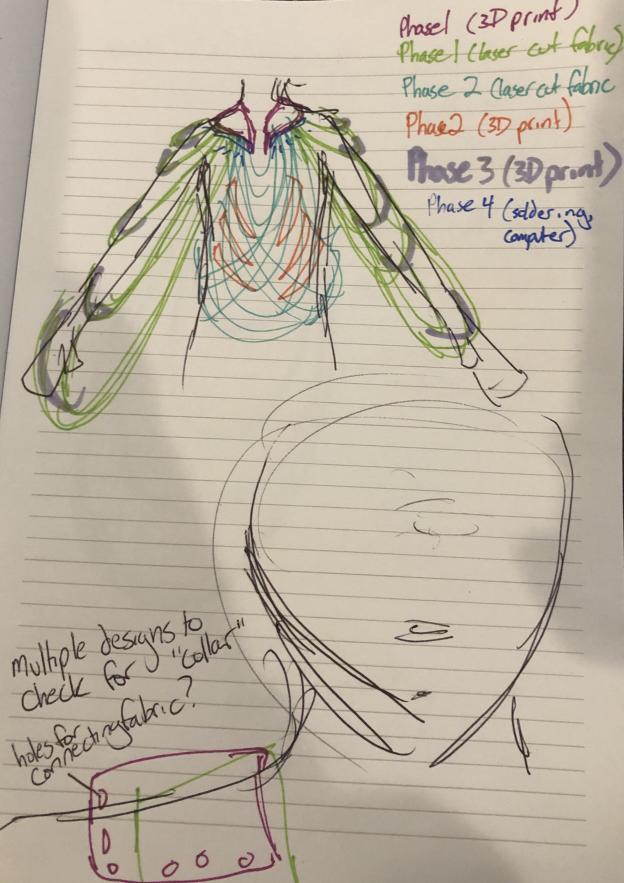 Phase1 (3D print)
Phase 1 (laser cut fabric)
Phase 2 (laser cut fabric
Phase2 (3D print)
Phase 3 (3D print)
Phase 4 (soldering,
computer)
Multiple designs to
check for "collar"
holes for
connecting fabric?